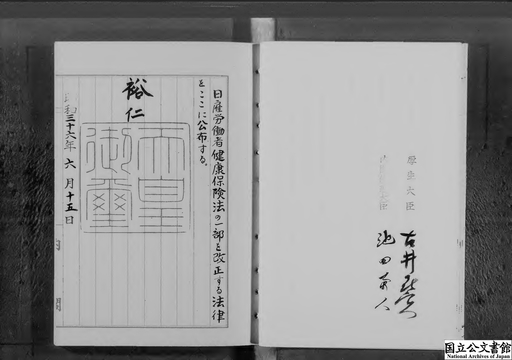 日雇労働者健康保険法の一部を改正する法律
をここに公布する。
裕仁
天皇
御璽
昭和三十六年六月十五日
厚生大臣
古井
池田勇人
国立公文書館
National Archives of Japan